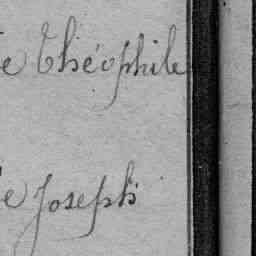 e Théophile
e Joseph